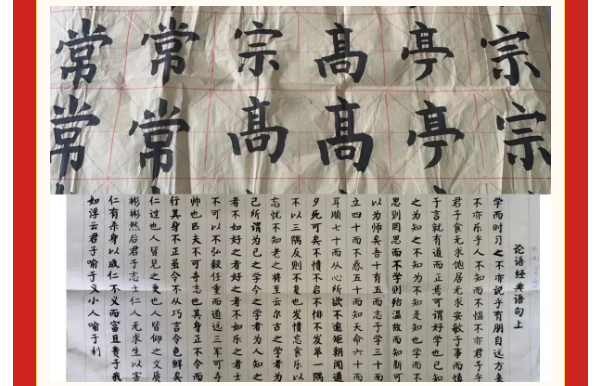 常常宗髙亭宗
常常髙髙亭宗
论语经典语句上
学而时习之不亦说乎有朋自远方来
不亦乐乎人不知而不愠不亦君子乎
君子食无求饱居无求安敏于事而慎
于言就有道而正焉可谓好学也已知
之为知之不知为不知是知也学而不
思则罔思而不学则殆温故而知新可
以为师矣吾十有五而志于学三十而
立四十而不惑五十而知天命六十而
耳顺七十而从心所欲不逾矩朝闻道
夕死可矣不愤不启不悱不发举一隅
不以三隅反则不复也发愤忘食乐以
忘忧不知老之将至云尔古之学者为
己所谓为己之学今之学者为人知之
者不如好之者好之者不如乐之者士
不可以不弘毅任重而道远三军可夺
帅也匹夫不可夺志也其身正不令而
行其身不正虽令不从巧言令色鲜矣
仁过也人皆见之更也人皆仰之文质
彬彬然后君子志士仁人无求生以害
仁有杀身以成仁不义而富且贵于我
如浮云君子喻于义小人喻于利